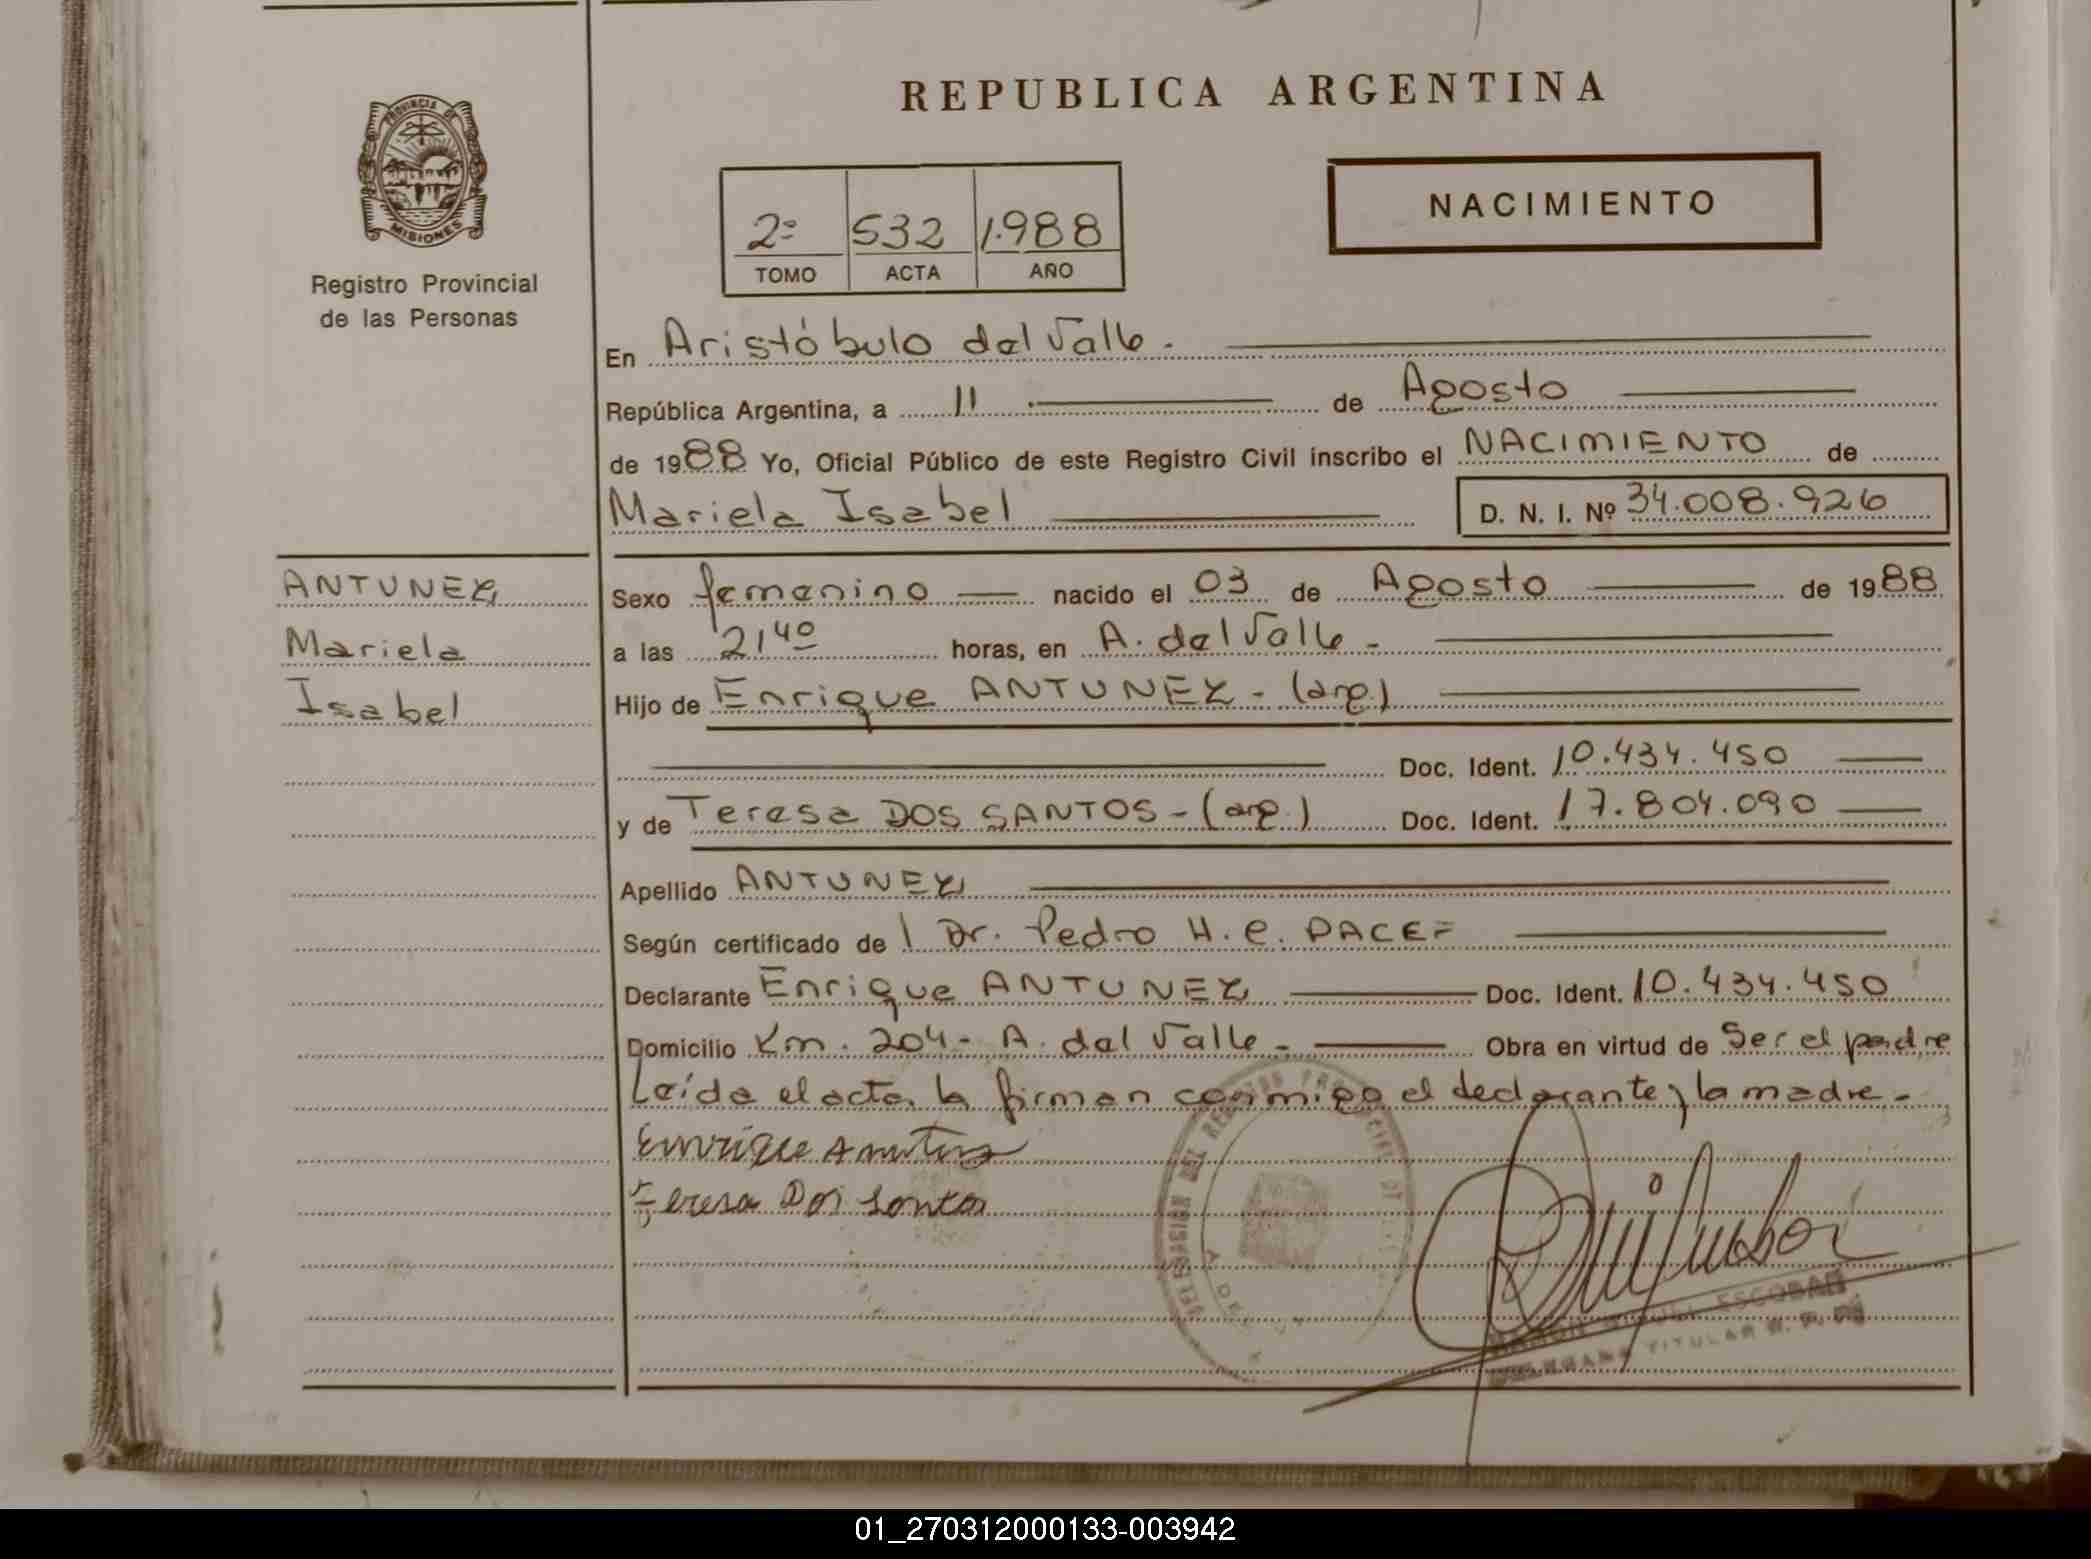 PROVINCIA DE
MISIONES
Registro Provincial
de las Personas
REPUBLICA ARGENTINA
NACIMIENTO
2º 532 1.988
TOMO ACTA AÑO
En Aristóbulo del Valle.
República Argentina, a 11 de Agosto
de 1988 Yo, Oficial Público de este Registro Civil inscribo el NACIMIENTO de
Mariela Isabel D. N. I. Nº 34.008.926
ANTUNEZ
Mariela
Isabel
Sexo femenino nacido el 03 de Agosto de 1988
a las 21 40 horas, en A. del Valle -
Hijo de Enrique ANTUNEZ - (arg.)
Doc. Ident. 10.434.450
y de Teresa DOS SANTOS - (arg.) Doc. Ident. 17.804.090
Apellido ANTUNEZ
Según certificado de Dr. Pedro H. C.
Declarante Enrique ANTUNEZ Doc. Ident. 10.434.450
Domicilio Km. 204 - A. del Valle - Obra en virtud de Ser el padre
Leída el acta, la firman conmigo el declarante y la madre -
Enrique
Teresa Dos Santos
DELEGACION DEL REGISTRO PROVINCIAL DE
ESCOBAR
TITULAR R. P. P.
01_270312000133-003942